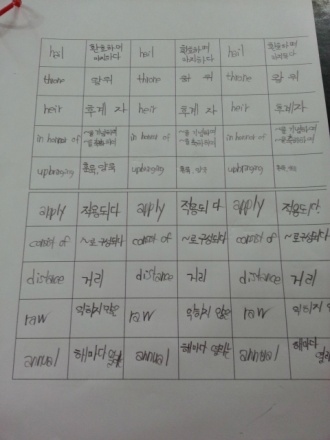 hail 환호하며 hail 환호하며 hail 환호하며
맞이하다 맞이하다 맞이하다
throne throne throne
heir 후계자 heir 후계자 heir 후계자
in honor of ~을 기념하여 in honor of ~을 기념하여 in honor of ~을 기념하여
upbringing 훈육, 양육 upbringing 훈육, 양육 upbringing 훈육,
apply 적용되다 apply 적용되다 apply 적용되다
consist of ~로 구성되다 consist of ~로 구성되다 consist of ~로 구성되다
distance 거리 distance 거리 distance 거리
raw 익히지 않은 raw 익히지 않은 raw 익히지
annual 해마다 annual 해마다 annual 해마다